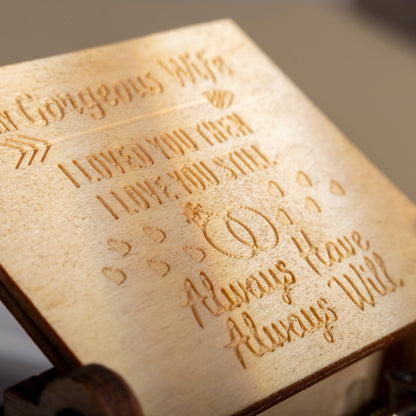 Gorgeous Wife
I LOVED YOU THEN
I LOVE YOU STILL.
Always Have
Always Will.